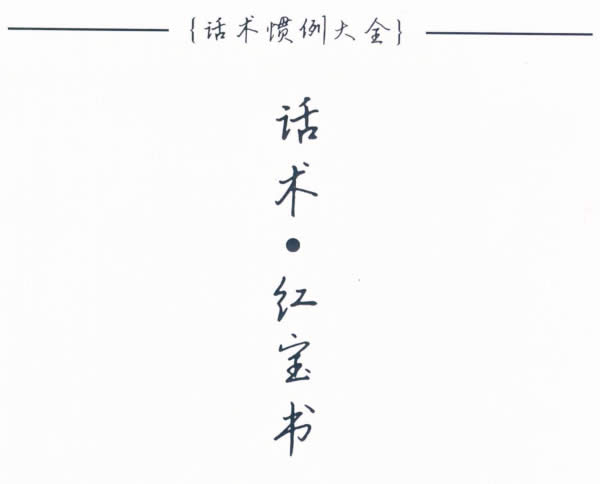 {话术惯例大全}
话术•红宝书